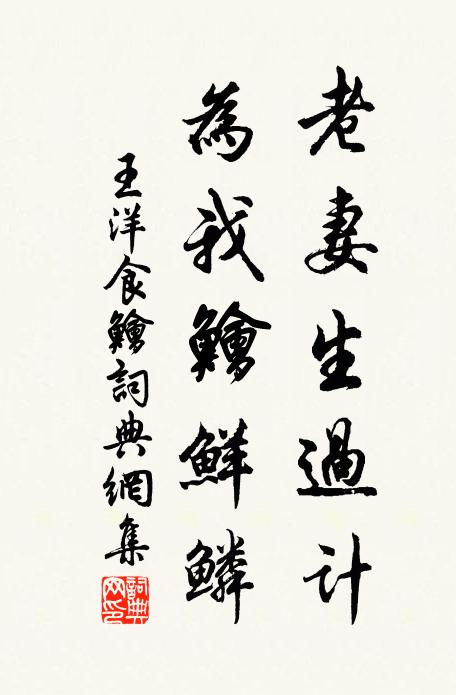 老妻生過計
為我鱠鮮鱗
王洋食鱠詞典網集
詞典網印